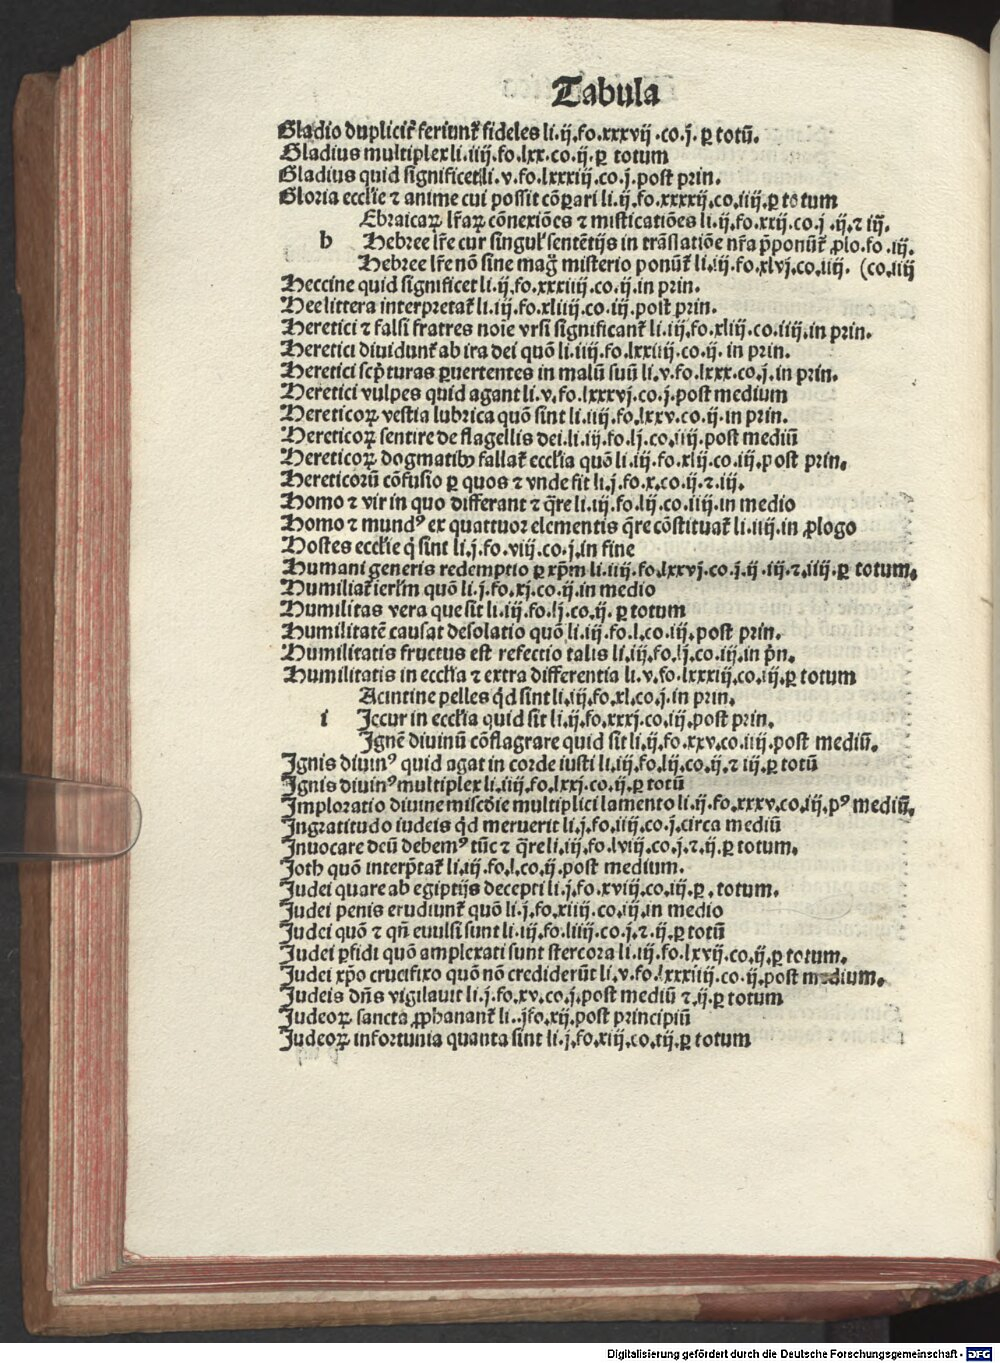 Tabula
Gladio duplicit᷑ feriunt᷑ fideles li.ij.fo.xxxvij.co.j.ꝑ totū.
Gladius multiplex li.iiij.fo.lxx.co.ij.ꝑ totum
Gladius quid significet li.v.fo.lxxxiij.co.j.post prin.
Gloria eccl'ie ⁊ anime cui possit cōꝑari li.ij.fo.xxxxij.co.iiij.ꝑ totum
Ebraicaꝝ lr̄aꝝ cōnexiōes ⁊ misticatiōes li.ij.fo.xxij.co.j.ij.⁊ iij.
h Hebree lr̄e cur singul' sentētijs in trāslatiōe nr̄a p̄ponūt᷑ ꝓlo.fo.iij.
Hebree lr̄e nō sine mag̊ misterio ponūt᷑ li.ij.fo.xlvj.co.iiij. (co.iiij
Heccine quid significet li.ij.fo.xxxiij.co.ij.in prin.
Hee littera interpretat᷑ li.iij.fo.xliiij.co.iij.post prin.
Heretici ⁊ falsi fratres noīe vrsi significant᷑ li.iij.fo.xliij.co.iiij.in prin.
Heretici diuidunt᷑ ab ira dei quō li.iiij.fo.lxxiiij.co.ij. in prin.
Heretici scp̄turas ꝑuertentes in malū suū li.v.fo.lxxx.co.j.in prin.
Heretici vulpes quid agant li.v.fo.lxxxvj.co.j.post medium
Hereticoꝝ vestia lubrica quō sint li.iiij.fo.lxxv.co.ij.in prin.
Hereticoꝝ sentire de flagellis dei.li.iij.fo.lj.co.iiij.post mediū
Hereticoꝝ dogmatibꝰ fallat᷑ eccl'ia quō li.iij.fo.xlij.co.iij.post prin.
Hereticorū cōfusio ꝑ quos ⁊ vnde fit li.j.fo.x.co.ij.⁊.iij.
Homo ⁊ vir in quo differant ⁊ q̄re li.iij.fo.lij.co.iiij.in medio
Homo ⁊ mundꝰ ex quattuor elementis q̄re cōstituat᷑ li.iiij.in ꝓlogo
Hostes eccl'ie q̄ sint li.j.fo.viij.co.j.in fine
Humani generis redemptio ꝑ xp̄m li.iiij.fo.lxxvj.co.j.ij.iij.⁊.iiij.ꝑ totum.
Humiliat᷑ ierl'm quō li.j.fo.xj.co.ij.in medio
Humilitas vera que sit li.iij.fo.lj.co.ij.ꝑ totum
Humilitatē causat desolatio quō li.iij.fo.l.co.iij.post prin.
Humilitatis fructus est refectio talis li.iij.fo.lj.co.iij.in p̄n.
Humilitatis in eccl'ia ⁊ extra differentia li.v.fo.lxxxiij.co.iij.ꝑ totum
Acintine pelles q̄d sint li.iij.fo.xl.co.j.in prin.
i Jecur in eccl'ia quid sit li.ij.fo.xxxj.co.iij.post prin.
Jgnē diuinū cōflagrare quid sit li.ij.fo.xxv.co.iiij.post mediū.
Jgnis diuinꝰ quid agat in corde iusti li.iij.fo.lij.co.ij.⁊ iij.ꝑ totū
Jgnis diuinꝰ multiplex li.iiij.fo.lxxj.co.ij.ꝑ totū
Jmploratio diuine misc'die multiplici lamento li.ij.fo.xxxv.co.iij.pꝰ mediū.
Jngratitudo iudeis q̄d meruerit li.j.fo.iiij.co.j.circa mediū
Jnuocare deū debemꝰ tūc ⁊ q̄re li.iij.fo.lviij.co.j.⁊.ij.ꝑ totum.
Joth quō interp̄tat᷑ li.iij.fo.l.co.ij.post medium.
Judei quare ab egiptijs decepti li.j.fo.xviij.co.iij.ꝑ.totum.
Judei penis erudiunt᷑ quō li.j.fo.xiiij.co.iij.in medio
Judei quō ⁊ qn̄ euulsi sunt li.iij.fo.liiij.co.j.⁊.ij.ꝑ totū
Judei ꝑfidi quō amplexati sunt stercora li.iij.fo.lxvij.co.ij.ꝑ totum.
Judei xp̄o crucifixo quō nō crediderūt li.v.fo.lxxxiiij.co.ij.post medium.
Judeis dn̄s vigilauit li.j.fo.xv.co.j.post mediū ⁊.ij.ꝑ totum
Judeoꝝ sancta ꝓphanant᷑ li..jfo.xij.post principiū
Judeoꝝ infortunia quanta sint li.j.fo.xiij.co.iij.ꝑ totum
Digitalisierung gefördert durch die Deutsche Forschungsgemeinschaft - DFG